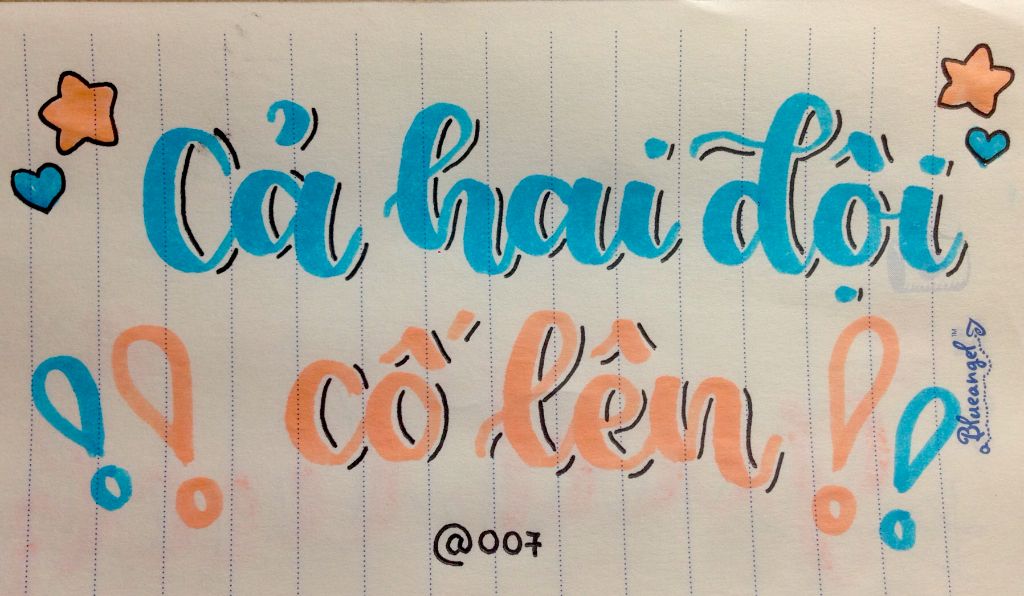 Cả hai đội
cố lên
@007
Blueangel™